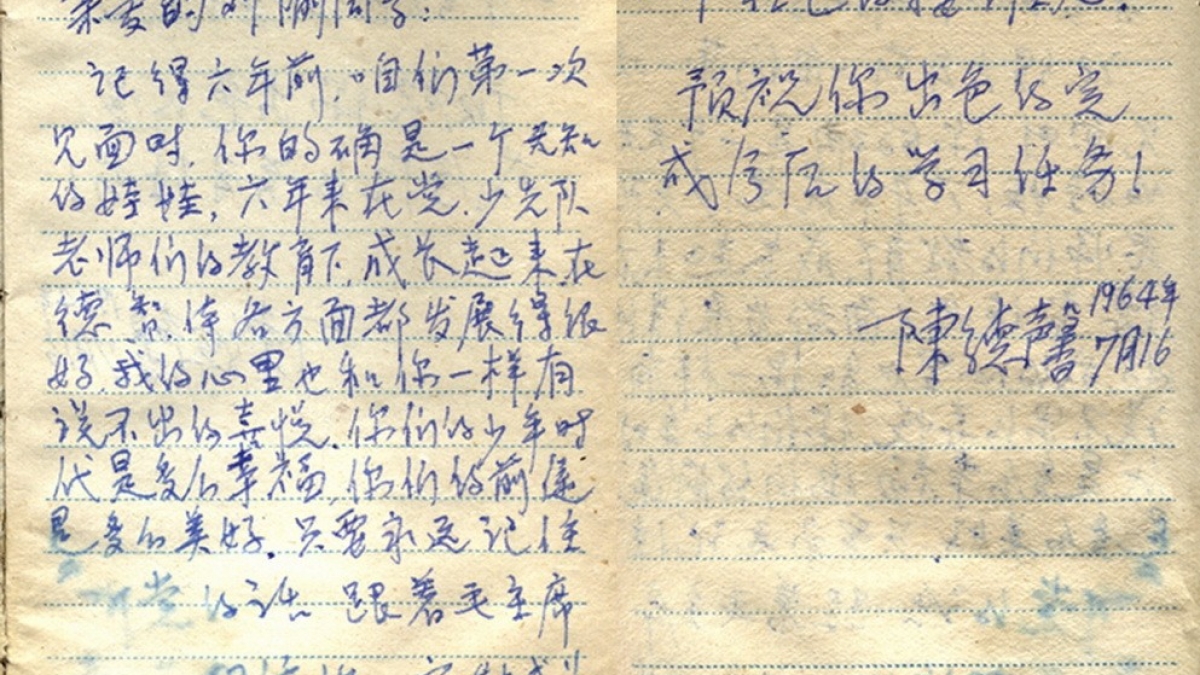 记得六年前,咱们第一次
见面时,你的确是一个无知
的娃娃,六年来在党、少先队
老师们的教育下,成长起来,在
德、智、体各方面都发展得很
好,我的心里也和你一样有
说不出的喜悦,你们的少年时
代是多么幸福,你们的前途
是多么美好,只要永远记住
听党的话 跟着毛主席
预祝你出色的完
成今后的学习任务!
陳德馨 1964年
7月16